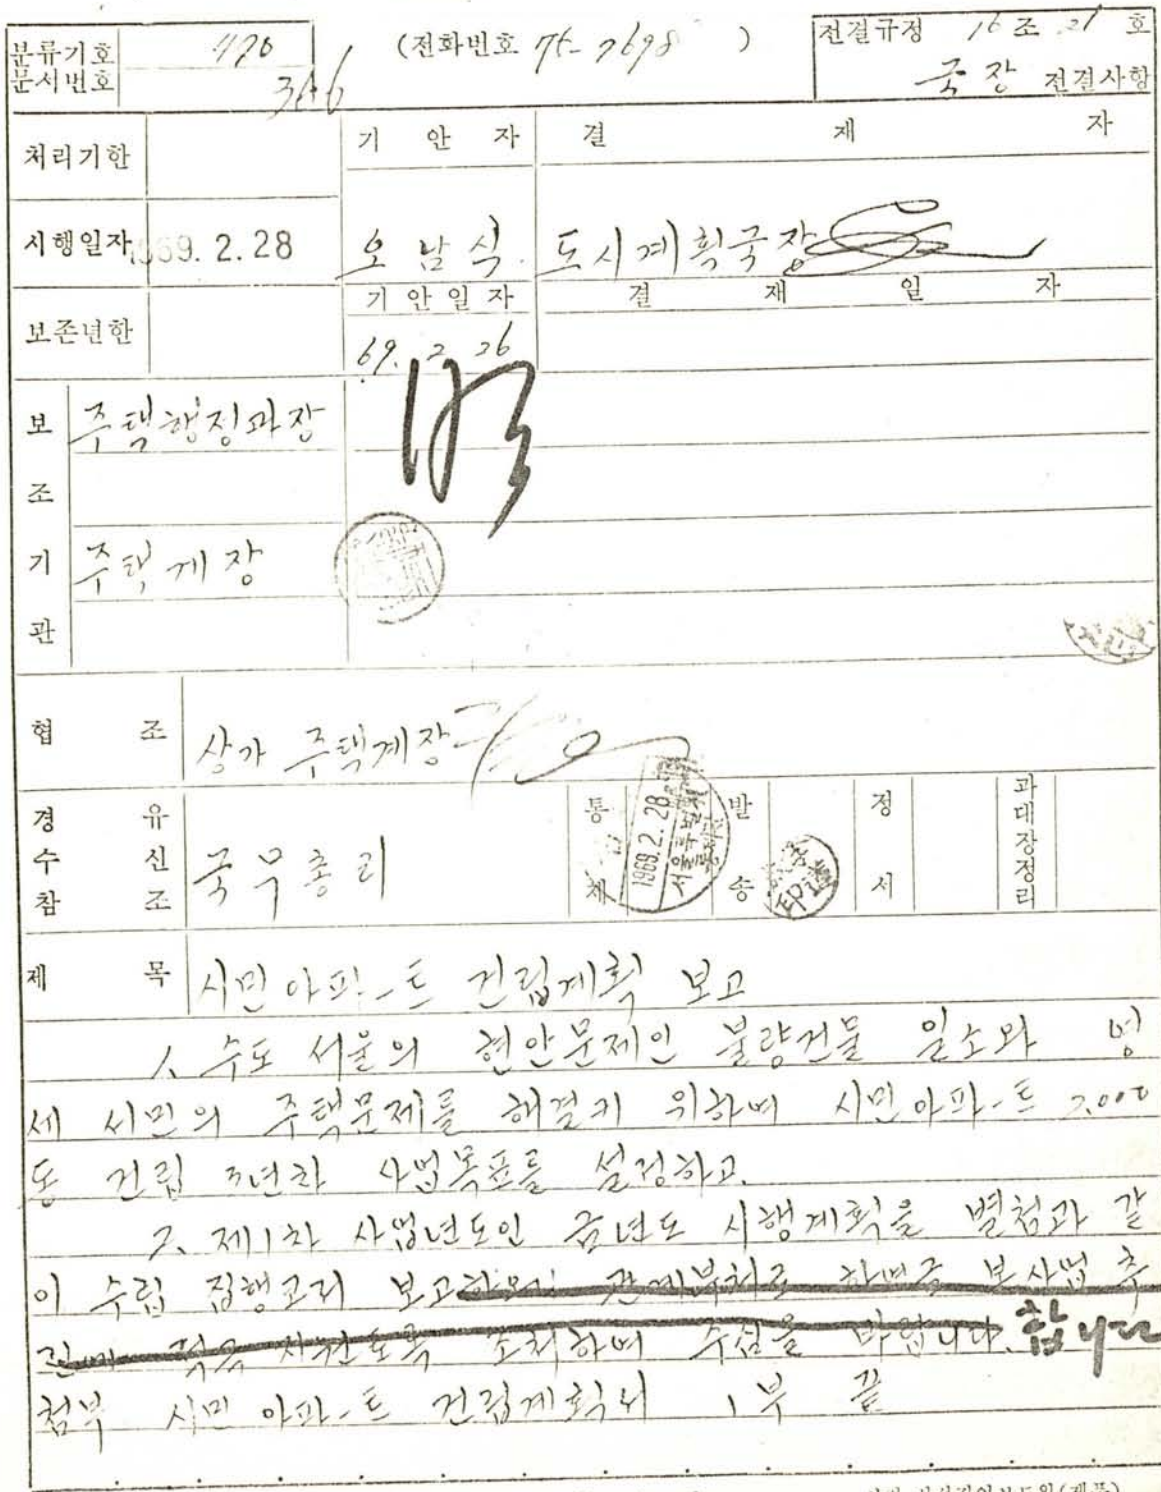 분류기호 문서번호 (전화번호 75-7698) 전결규정 16조 21호
국장 전결사항
처리기한 기안자 결재자
시행일자 1969.2.28 오남식. 도시계획국장
기안일자 결재일자
보존년한 69. 2. 26
보조기관
주택행정과장
주택계장
협조 상가 주택계장
경유 수신 참조 국무총리 통제 1969.2.28 발송 정서 관대장정리
제목 시민아파-트 건립계획 보고
1. 수도 서울의 현안문제인 불량건물 일소와 영
세 시민의 주택문제를 해결키 위하여 시민아파-트 2,000
동 건립 3년차 사업목표를 설정하고.
2. 제1차 사업년도인 금년도 시행계획을 별첨과 같
이 수립 집행코저 보고하오니 관계부처로 하여금 본사업 추
진에 적극 지원토록 조치하여 주심을 바랍니다. 합니다
첨부 시민아파-트 건립계획서 1부 끝